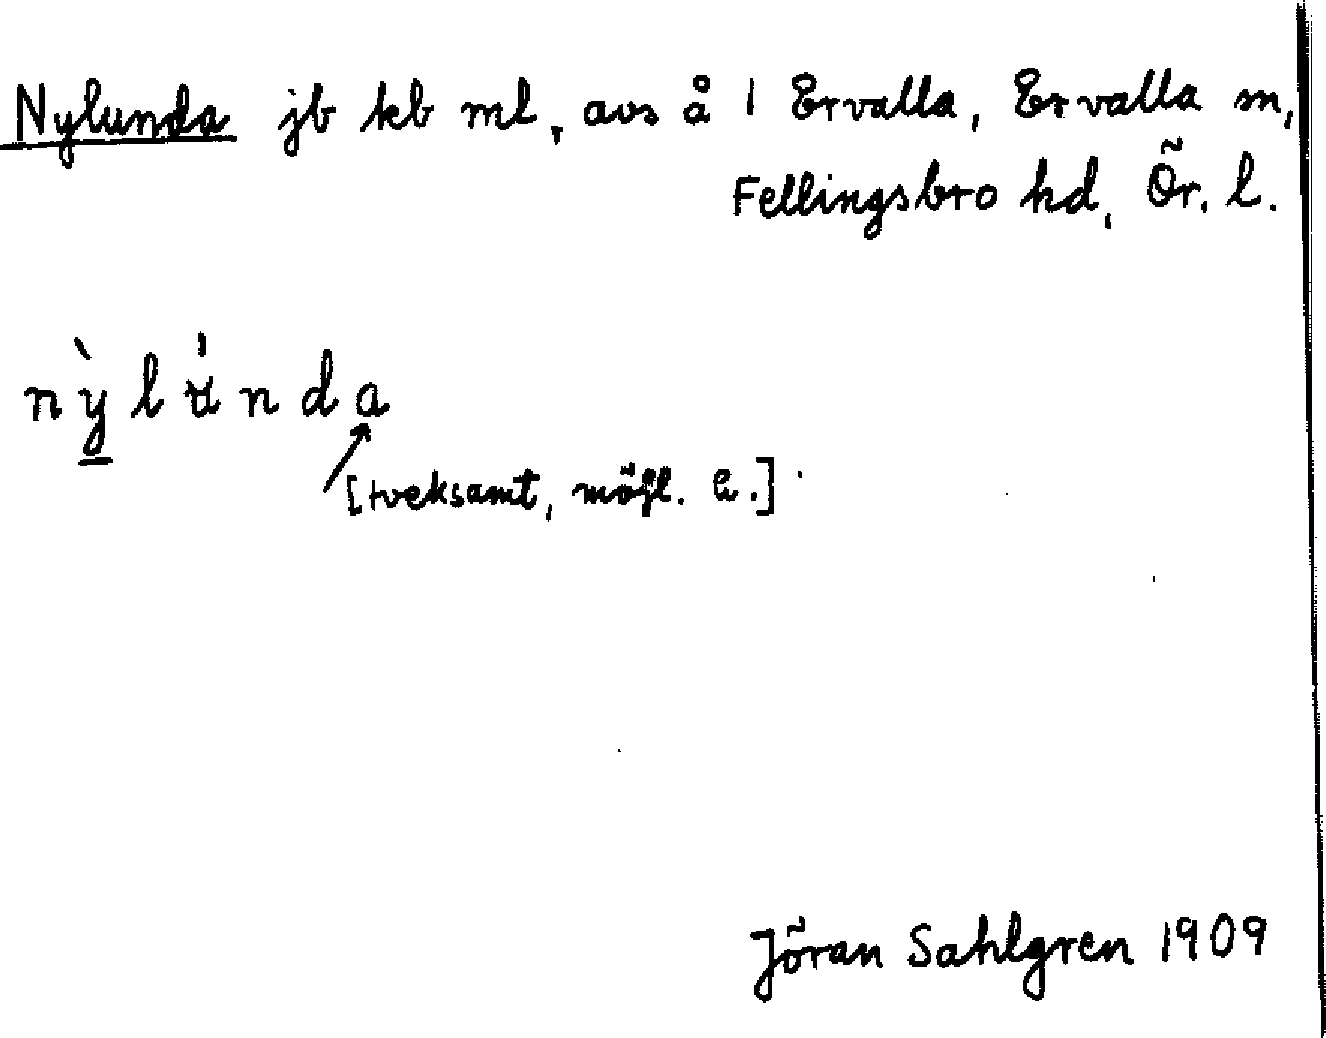 Nylunda jb kb ml, avs å 1 Ervalla, Ervalla sn,
Fellingsbro hd, Ör. l.
nỳlu̍nda
[tveksamt, möjl. a.]
Jöran Sahlgren 1909